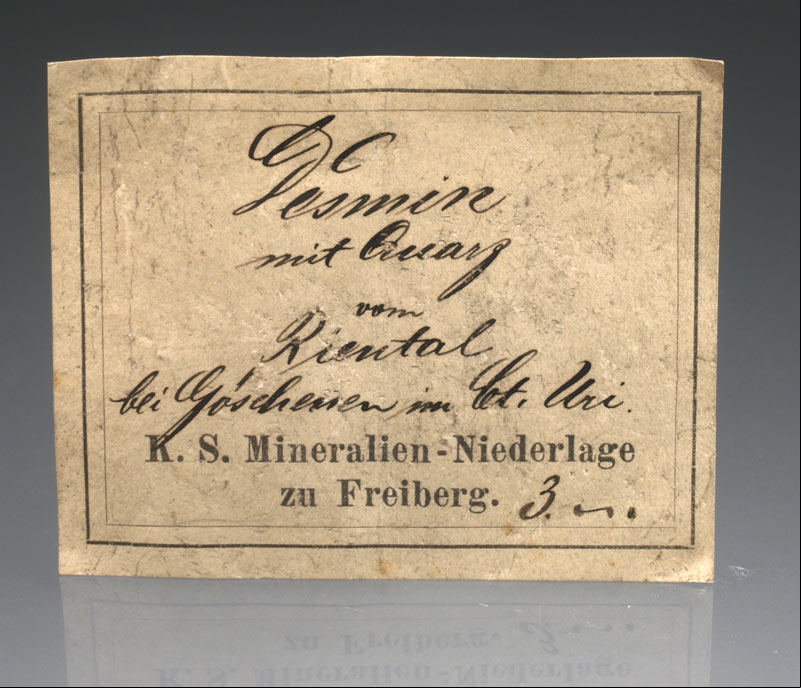 Desmin
mit Quarz
vom
Riental
bei Göschenen im Ct. Uri.
K. S. Mineralien-Niederlage
zu Freiberg. 3.